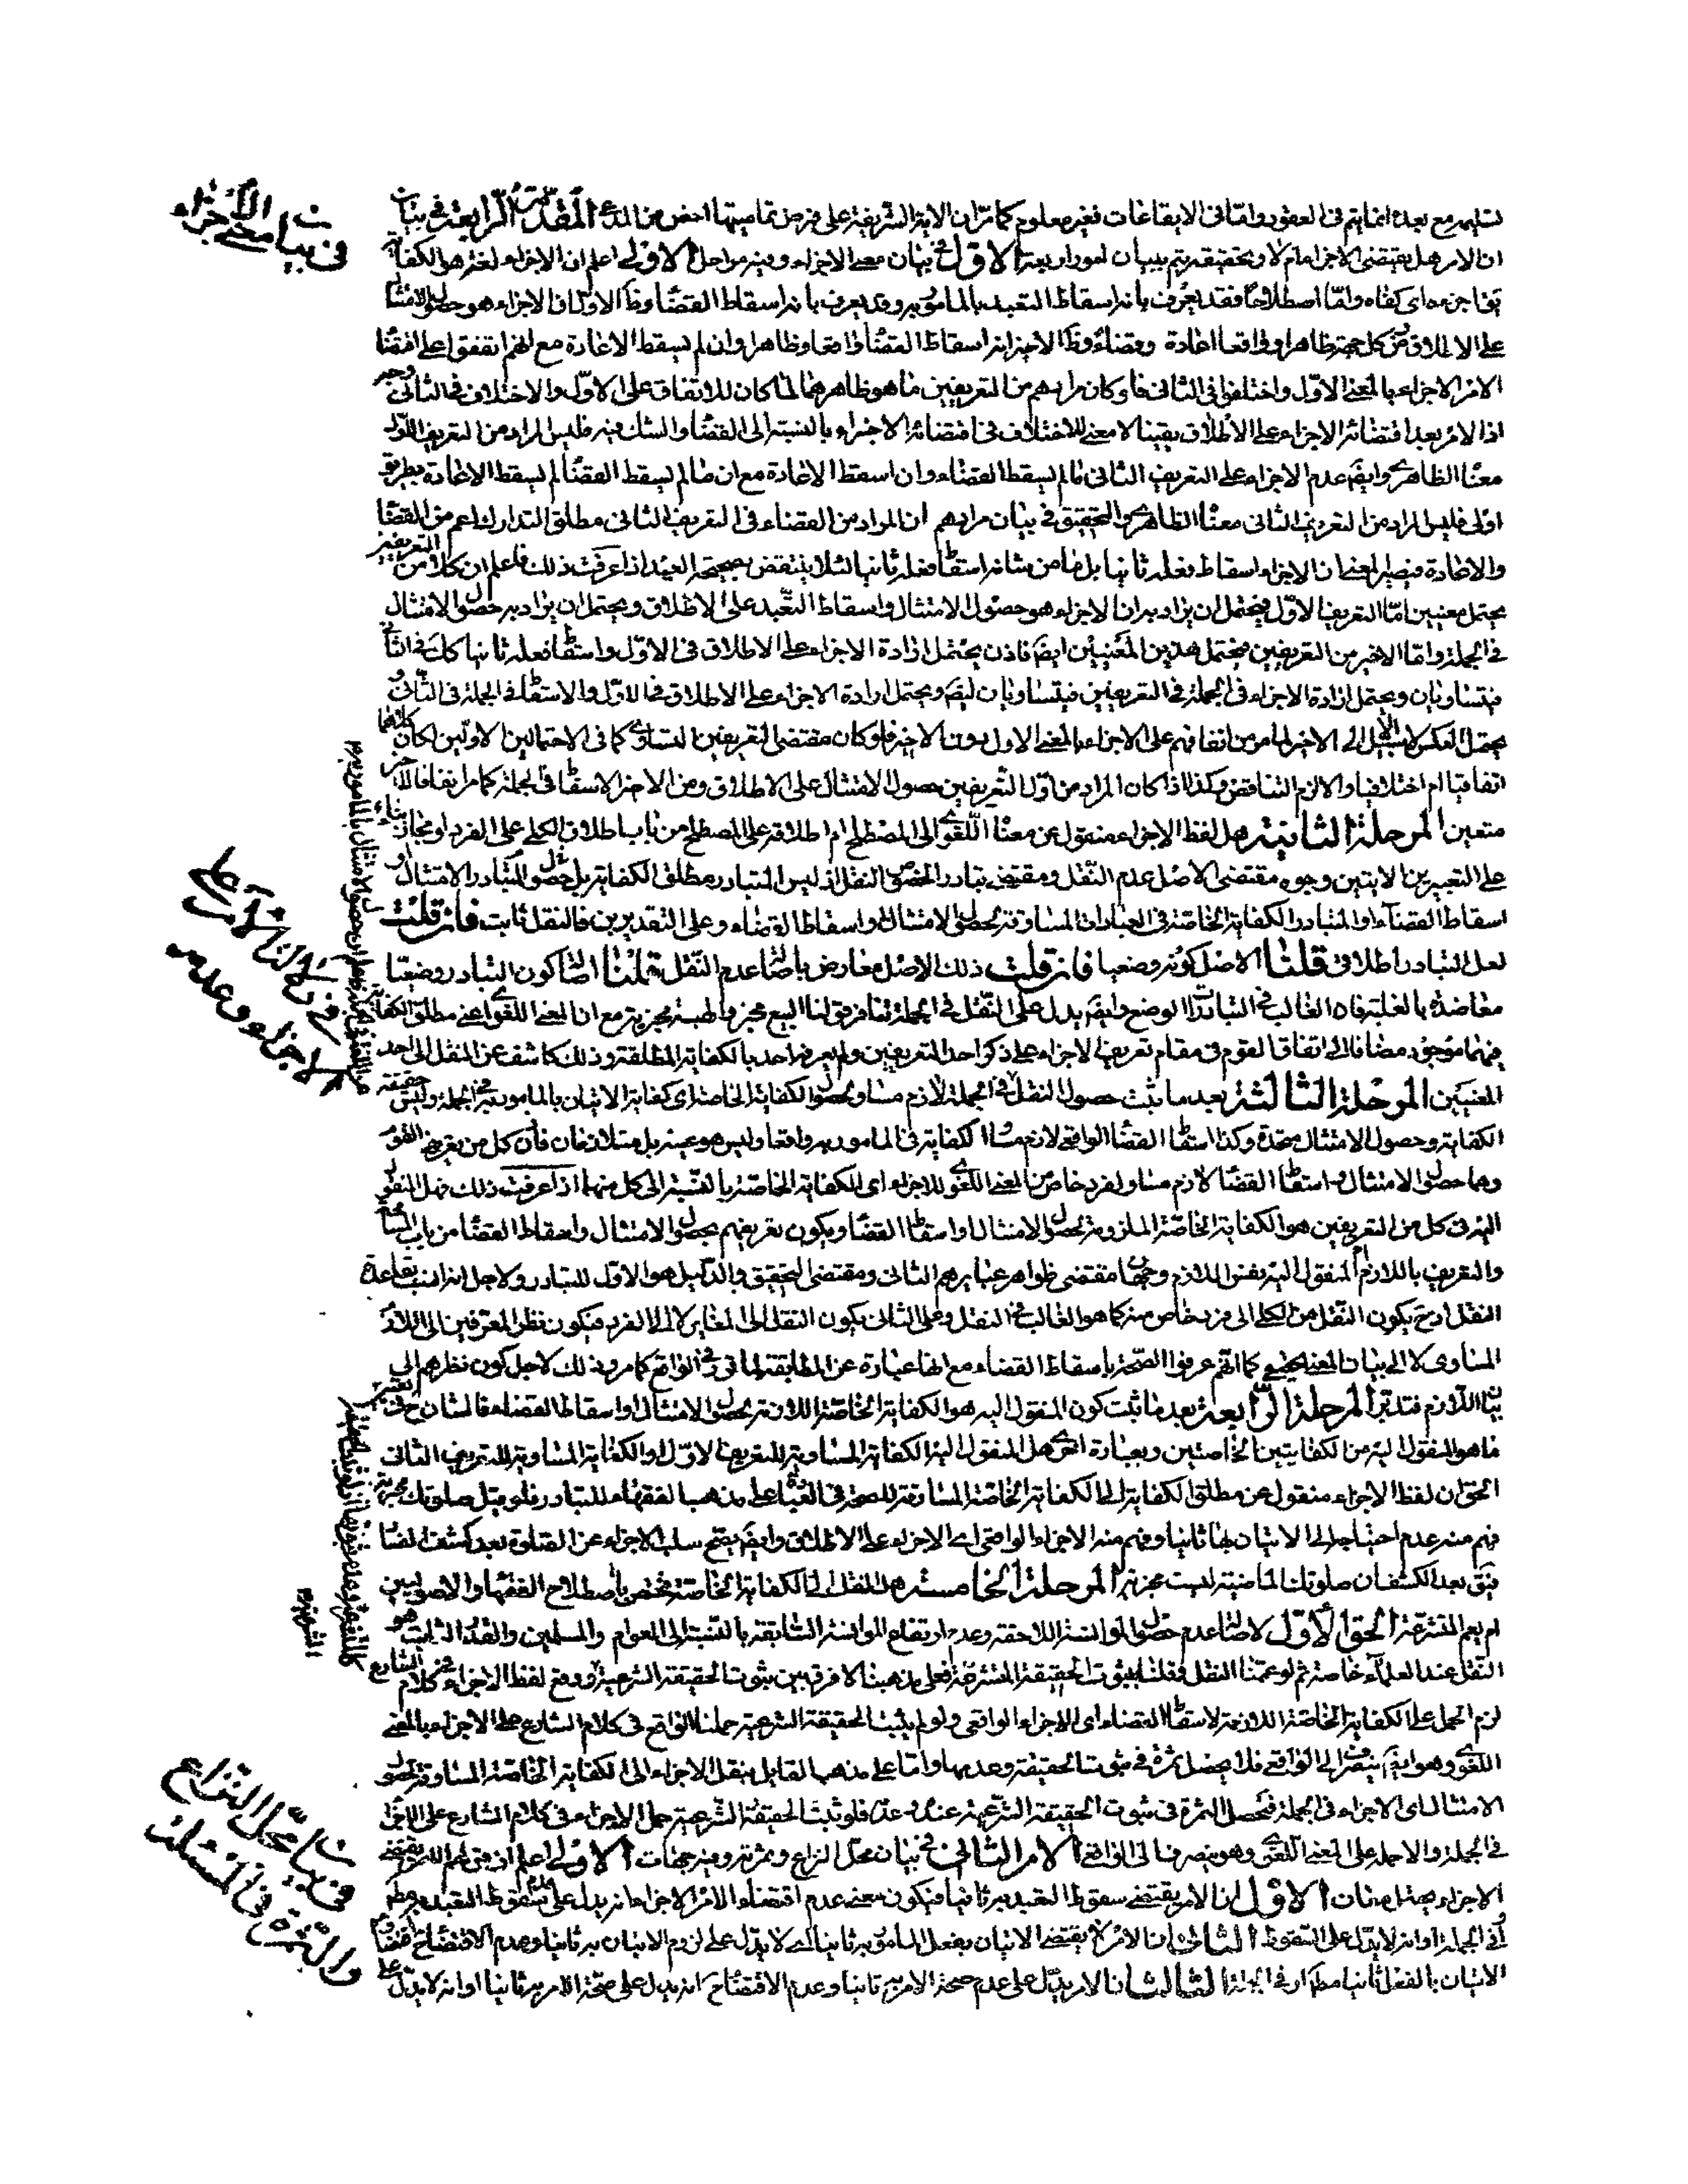 تسليمه مع بعده انما يتم في العقود واما في الايقاعات فغير معلوم كما مرّ ان الاية الشريفة على فرض تماميتها اخص من المدعى المقدّمة الرابعة في بيان
ان الامر هل يقتضي الاجزاء ام لا وتحقيقه يتم ببيان امور اربعة الاول في بيان معنى الاجزاء وفيه مراحل الاولى اعلم ان الاجزاء لغة هو الكفاية
يقال اجزءه اي كفاه وامّا اصطلاحا فقد يعرف بانه اسقاط التعبد بالمامور به وقد يعرف بانه اسقاط القضاء وظ الاول ان الاجزاء هو حصول الامتثال
على الاطلاق من كل جهة ظاهرا وواقعا اعادة وقضاء وظ الاخير انه اسقاط القضاء واقعا وظاهرا وان لم يسقط الاعادة مع انهم اتفقوا على اقتضاء
الامر الاجزاء بالمعنى الاوّل واختلفوا في الثاني فلو كان مرادهم من التعريفين ما هو ظاهرهما لما كان للاتفاق على الاوّل والاختلاف في الثاني وجه
اذ الامر بعد اقتضائه الاجزاء على الاطلاق يقينا لا معنى للاختلاف في اقتضائه الاجزاء بالنسبة الى القضاء والشك فيه فليس المراد من التعريف الاوّل
معناه الظاهري وايضَ عدم الاجزاء على التعريف الثاني ما لم يسقط القضاء وان اسقط الاعادة مع ان ما لم يسقط القضاء لم يسقط الاعادة بطريق
اولى فليس المراد من التعريف الثاني معناه الظاهري والتحقيق في بيان مرادهم ان المراد من القضاء في التعريف الثاني مطلق التدارك اعم من القضاء
والاعادة فيصير المعنى ان الاجزاء اسقاط فعله ثانيا بل ما من شانه اسقاط فعله ثانيا لئلا ينتقض بصحيحة العيد اذا عرفت ذلك فاعلم ان كلا من التعريفين
يحتمل معنيين امّا التعريف الاوّل فيحتمل ان يراد به ان الاجزاء هو حصول الامتثال واسقاط التعّبد على الاطلاق ويحتمل ان يراد به حصول الامتثال
في الجملة وامّا الاخير من التعريفين فيحتمل هذين المعنيين ايضَ فاذن يحتمل ارادة الاجزاء على الاطلاق في الاوّل واسقاط فعله ثانيا كك في الثاني
فيتساويان ويحتمل ارادة الاجزاء في الجملة في التعريفين فيتساويان ايضَ ويحتمل ارادة الاجزاء على الاطلاق في الاوّل والاسقاط في الجملة في الثاني و
يحتمل العكس لا سبيل الى الاخير لما مر من اتفاقهم على الاجزاء بالمعنى الاول دون الاخير فلو كان مقتضى التعريفين التساوي كما في الاحتمالين الاولين لكان كلاهما
اتفاقيا ام اختلافيا والا لزم التناقض وكذا اذا كان المراد من اوّل التعريفين حصول الامتثال على الاطلاق ومن الاخير الاسقاط في الجملة كما مر انفا فالاخير
متعين المرحلة الثانية هل لفظ الاجزاء منقول عن معناه اللّغوي الى المصطلح ام اطلاقه على المصطلح من باب اطلاق الكلي على الفرد او مجاز
على التعبيرين الاتيين وجوه مقتضى الاصل عدم النّقل ومقتضى تبادر الخصوص النقل اذ ليس المتبادر مطلق الكفاية بل حصول المتبادر الامتثال او
اسقاط القضاء او المتبادر الكفاية الخاصّة في العبارات المساوقة لحصول الامتثال او اسقاط القضاء وعلى التقديرين فالنقل ثابت فان قلت
لعل التبادر اطلاقي قلنا الاصل كونه وضعيا فان قلت ذلك الاصل معارض باصالة عدم النّقل قلنا اصالة كون التبادر وضعيّا
معاضدة بالغلبة فان الغالب في التبادر الوضع وايضَ يدل على النّقل في الجملة تنافر قولنا البيع مجز والهبة مجزية مع ان المعنى اللغوي اعني مطلق الكفاية
فيهما موجود مضافا الى اتفاق القوم في مقام تعريف الاجزاء على ذكر احد التعريفين ولم يعرفه احد بالكفاية المطلقة وذلك كاشف عن النقل الى احد
المعنيين المرحلة الثالثة بعد ما ثبت حصول النقل في الجملة لازم مساو لحصول الكفاية الخاصة اي كفاية الاتيان بالمامور به في الجملة وليس حقيقة
الكفاية وحصول الامتثال متحدة وكذا اسقاط القضاء الواقعي لازم مساو الكفاية في المامور به واقعا وليس هو عينه بل متلازمان فان كل من تعريفي القوم
وهما حصول الامتثال واسقاط القضاء لازم مساو لفرد خاص من المعنى اللغوي للاجزاء اي الكفاية الخاصّة بالنسبة الى كل منهما اذا عرفت ذلك فهل المنقول
اليه في كل من التعريفين هو الكفاية الخاصّة الملزومة لحصول الامتثال او اسقاط القضاء ويكون تعريفهم بحصول الامتثال واسقاط القضاء من باب المسامحة
والتعريف باللازم ام المنقول اليه نفس اللازم وجهان مقتضى ظواهر عبايرهم الثاني ومقتضى التحقيق والدّليل هو الاوّل للتبادر ولاجل انه انسب بقاعدة
النقل اذ ح يكون النّقل من الكلي الى فرد خاص منه كما هو الغالب في النقل وعلى الثاني يكون النقل الى المغاير لا الى الفرد فيكون نظر المعرّفين الى اللازم
المساوي لا الى بيان المعنى الحقيقي كما انّهم عرفوا الصّحة باسقاط القضاء مع انها عبارة عن المطابقة لما في الواقع كما مر وذلك لاجل كون نظرهم الى
بيان اللّازم فتدبّر المرحلة الرّابعة بعد ما ثبت كون المنقول اليه هو الكفاية الخاصّة اللازمة لحصول الامتثال او اسقاط القضاء فالشان ح في
ما هو المنقول اليه من الكفايتين الخاصتين وبعبارة اخرى هل المنقول اليه الكفاية المساوية للتعريف الاوّل او الكفاية المساوية للتعريف الثاني
الحق ان لفظ الاجزاء منقول عن مطلق الكفاية الى الكفاية الخاصّة المساوقة للصحة في العبادة على مذهب الفقهاء للتبادر فلو قيل صلوتك مجزية
فهم منه عدم احتياجه الى الاتيان بها ثانيا وفهم منه الاجزاء الواقعي اي الاجزاء على الاطلاق وايضَ يصح سلب الاجزاء عن الصلوة بعد كشف الفساد
فيق بعد الكشف ان صلوتك الماضية ليست مجزية المرحلة الخامسة هل النقل الى الكفاية الخاصّة مختص باصطلاح الفقهاء والاصوليين
ام يعم المتشرعة الحق الاوّل لاصالة عدم حصول الموانسة اللاحقة وعدم ارتفاع الموانسة السّابقة بالنّسبة الى العوام والمسلمين والقدر الثابت هو
النّقل عند العلماء خاصة ثم لو عممنا النقل وقلنا بثبوت الحقيقة المتشرعة فعلى مذهبنا لا فرق بين ثبوت الحقيقة الشرعية ووقوع لفظ الاجزاء في كلام الشارع
لزم الحمل على الكفاية الخاصّة اللازمة لاسقاط القضاء اي الاجزاء الواقعي ولو لم يثبت الحقيقة الشرعية حملنا الواقع في كلام الشارع على الاجزاء بالمعنى
اللغوي وهو ايضَ ينصرف الى الواقعي فلا يحصل ثمرة في ثبوت الحقيقة وعدمها وامّا على مذهب القايل بنقل الاجزاء الى الكفاية الخاصّة المساوقة لحصول
الامتثال اي الاجزاء في الجملة فتحصل الثمرة في ثبوت الحقيقة الشّرعية عنده وعدمه فلو ثبت الحقيقة الشّرعية حمل الاجزاء في كلام الشارع على الاجزاء
في الجملة والا حمله على المعنى اللغوي وهو ينصرف الى الواقعي الامر الثاني في بيان محلّ النزاع وثمرته وفيه جهات الاولى اعلم ان قولهم الامر يقتضي
الاجزاء يحتمل معان الاول ان الامر يقتضي سقوط التعبد به ثانيا فيكون معنى عدم اقتضاء الامر الاجزاء انه يدل على عدم سقوط التعبد به مطم
او في الجملة او انه لا يدّل على السّقوط الثاني ان الامر لا يقتضي الاتيان بفعل المامور به ثانيا اي لا يدّل على لزوم الاتيان به ثانيا وعدم الاقتضاء ح اقتضاء
الاتيان بالفعل ثانيا مطم او في الجملة الثالث ان الامر يدّل على عدم صحة الامر به ثانيا وعدم الاقتضاء ح انه يدل على صحّة الامر به ثانيا او انه لا يدّل على
في بيان معنى الاجزاء
في بيان محلّ النّزاع
والثمرة في المسئلة